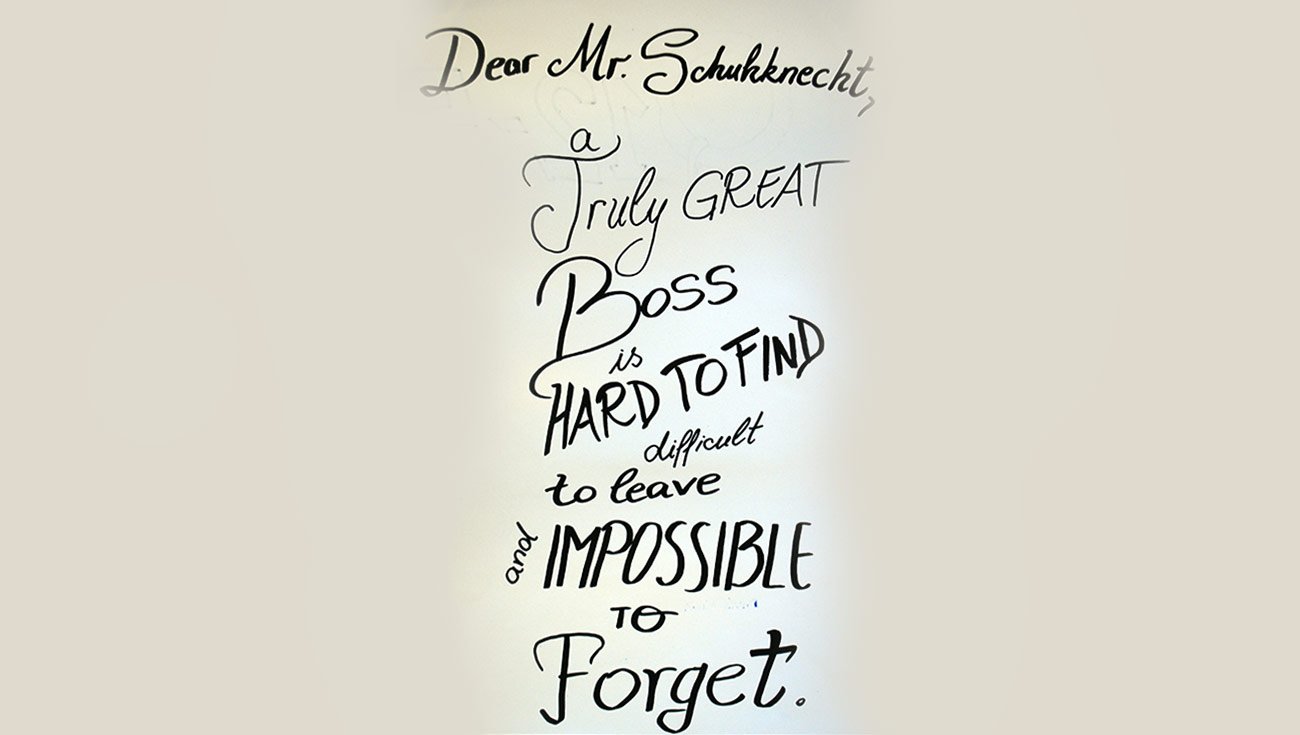 Dear Mr. Schuhknecht,
a
Truly GREAT
Boss
is
HARD TO FIND
difficult
to leave
and IMPOSSIBLE
TO
Forget.